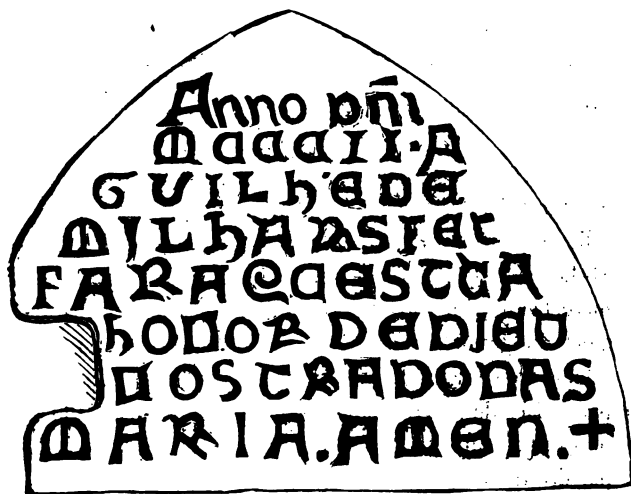 Anno Dñi
MCCCII·A
GUILhEDE
MILhARSFET
FARACESTCA
hONORDEDIEU
NOSTRADONAS
MARIA.AMEN.+